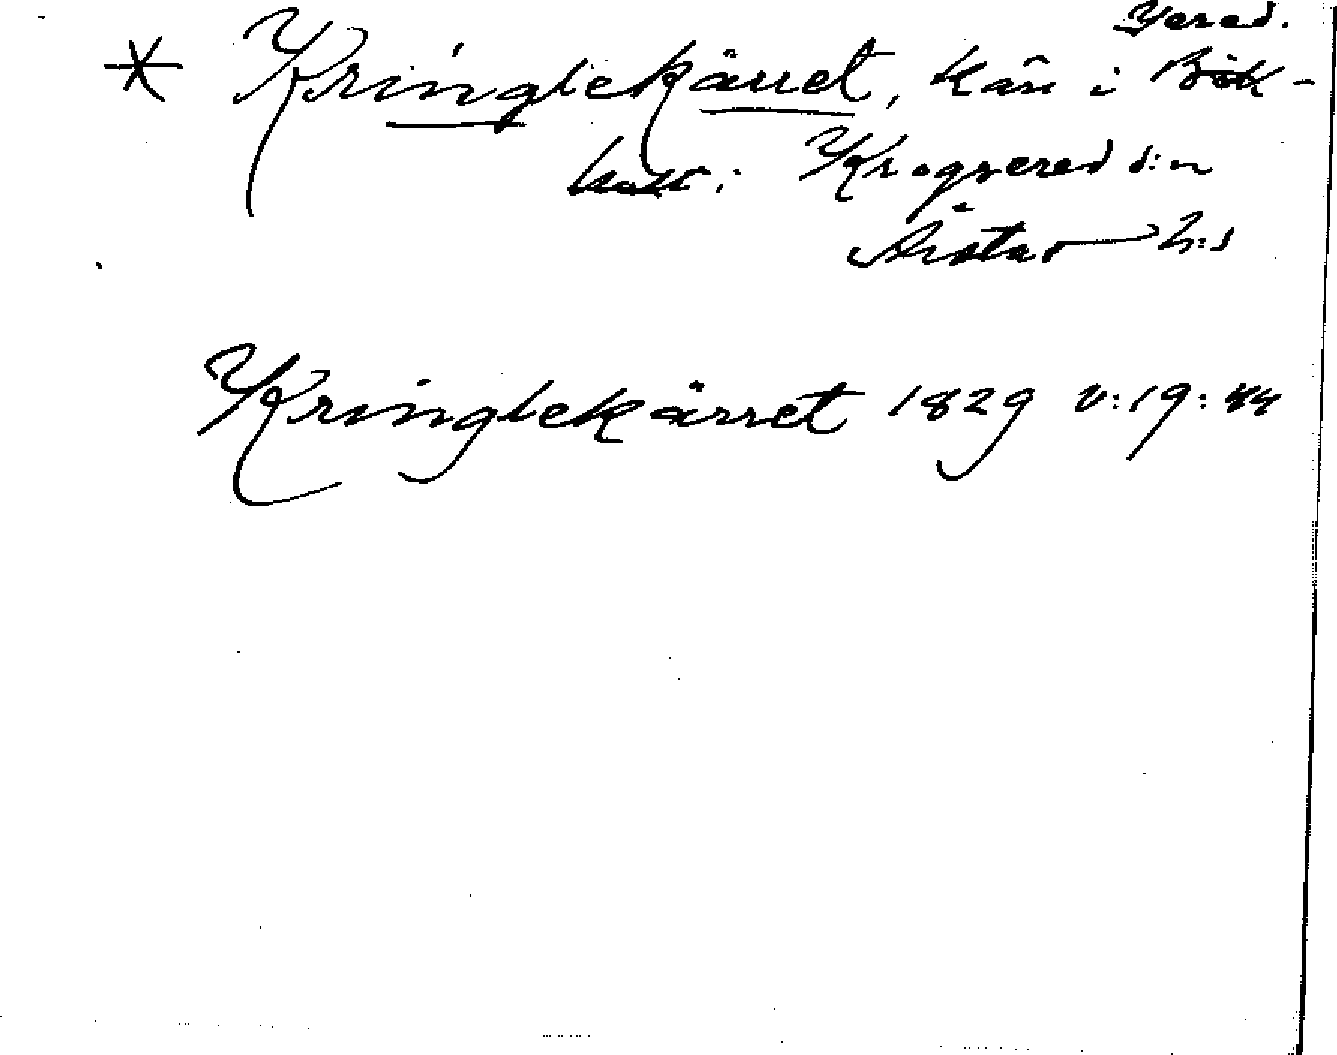 Yered.
* Kringlekärret, kärr i Bök-
Krogsered s:n
Årstad h:d
Kringlekärret 1829 V:19:44